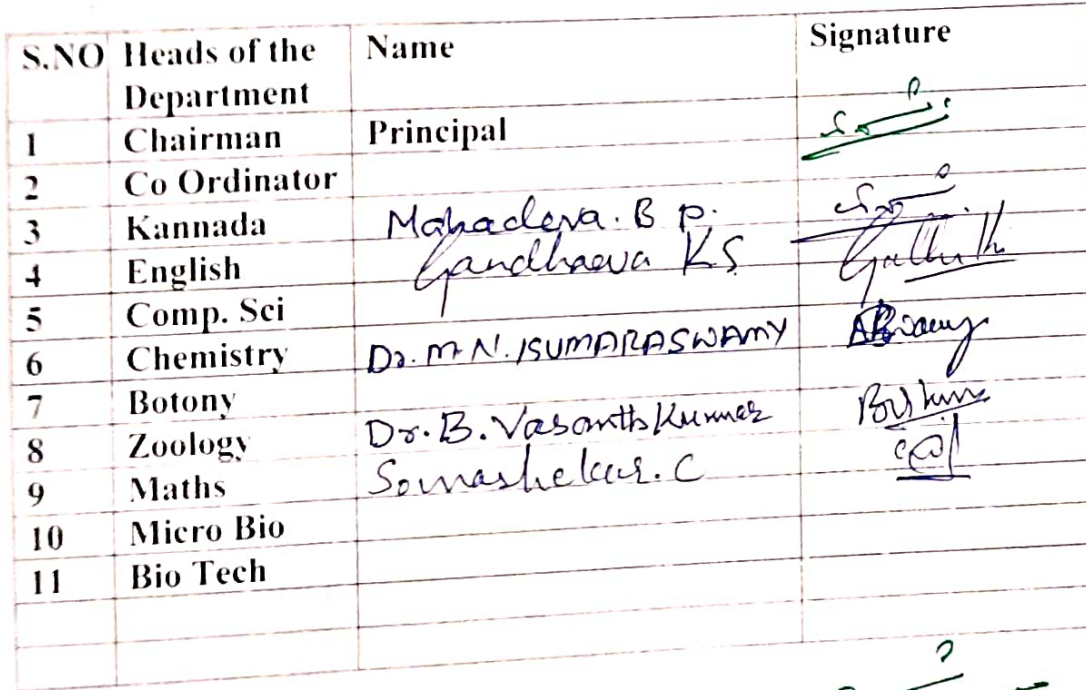 S.NO Heads of the Department Name Signature
1 Chairman Principal
2 Co Ordinator
3 Kannada Mahadeva. B P.
4 English Gandhaeva K S
5 Comp. Sci
6 Chemistry Dr. M N. KUMARASWAMY
7 Botony
8 Zoology Dr. B. Vasanth Kumar
9 Maths Somashekar. C
10 Micro Bio
11 Bio Tech